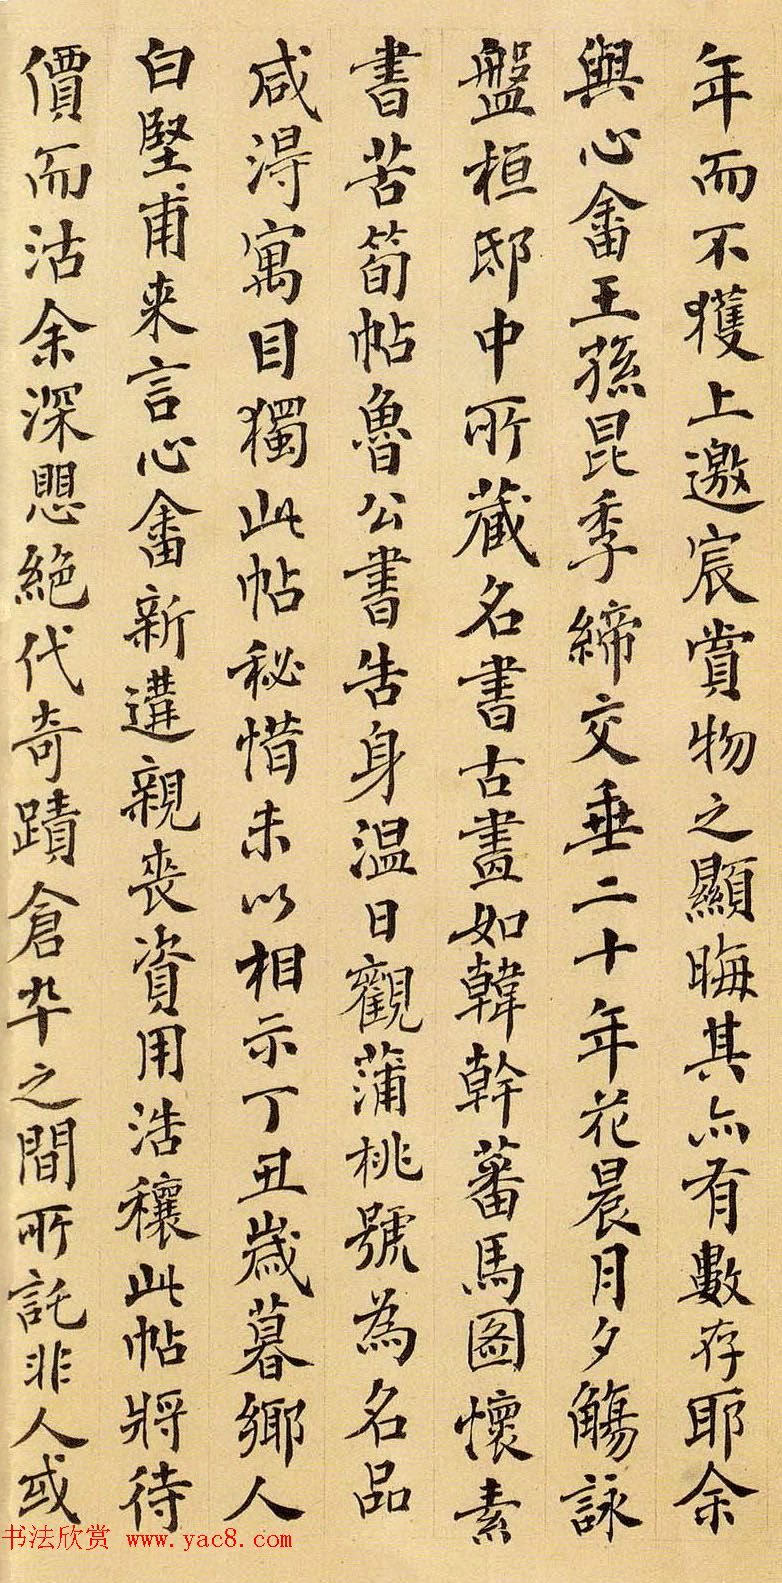 年而不獲上邀宸賞物之顯晦其亦有數存耶余
與心畬王孫昆季締交垂二十年花晨月夕觴詠
盤桓邸中所藏名書古畫如韓幹蕃馬圖懷素
書苦筍帖魯公書告身溫日觀蒲桃號為名品
咸得寓目獨此帖秘惜未以相示丁丑歲暮鄉人
白堅甫来言心畬新遘親喪資用浩穰此帖將待
價而沽余深恖絕代奇蹟倉卒之間所託非人或
书法欣赏 www.yac8.com